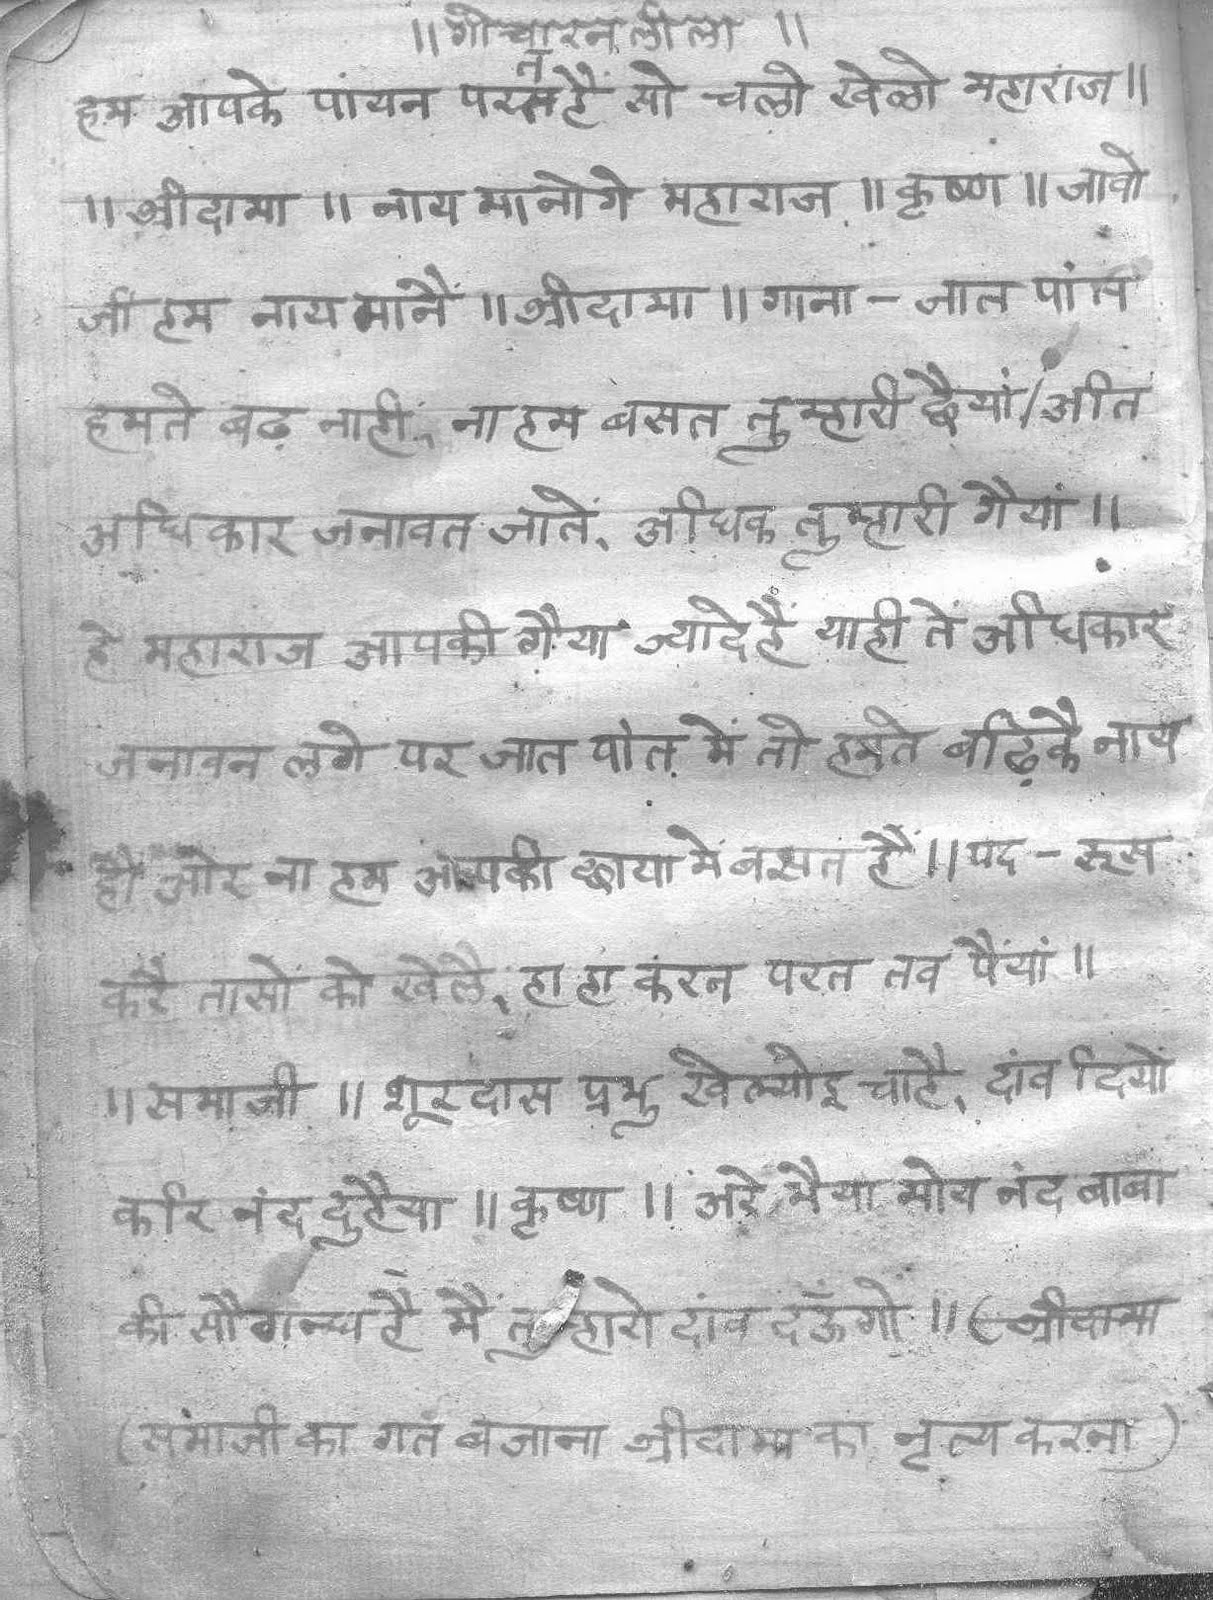 ॥ गोचारन लीला ॥
हम आपके पांयन परत हैं सो चलो खेलो महाराज ॥
॥ श्रीदामा ॥ नाय मानोगे महाराज ॥ कृष्ण ॥ जावो
जी हम नाय मानें ॥ श्रीदामा ॥ गाना - जात पांत
हमते बढ़ नाहीं, ना हम बसत तुम्हारी छैयां / अति
अधिकार जनावत जाते, अधिक तुम्हारी गैयां ॥
हे महाराज आपकी गैया ज्यादे हैं याही तें अधिकार
जनावन लगे पर जात पांत में तो हमते बढ़िकै नाय
हो और ना हम आपकी छाया में बसत हैं ॥ पद - रूस
करै तासों को खेलै, हा हा करत परत तव पैंयां ॥
॥ समाजी ॥ शूरदास प्रभु खेल्योइ चाहै, दांव दियो
करि नंद दुहैया ॥ कृष्ण ॥ अरे भैया मोय नंद बाबा
की सौगन्ध है मैं तुम्हारो दांव दँऊगो ॥ (श्रीदामा
(समाजी का गत बजाना श्रीदामा का नृत्य करना)